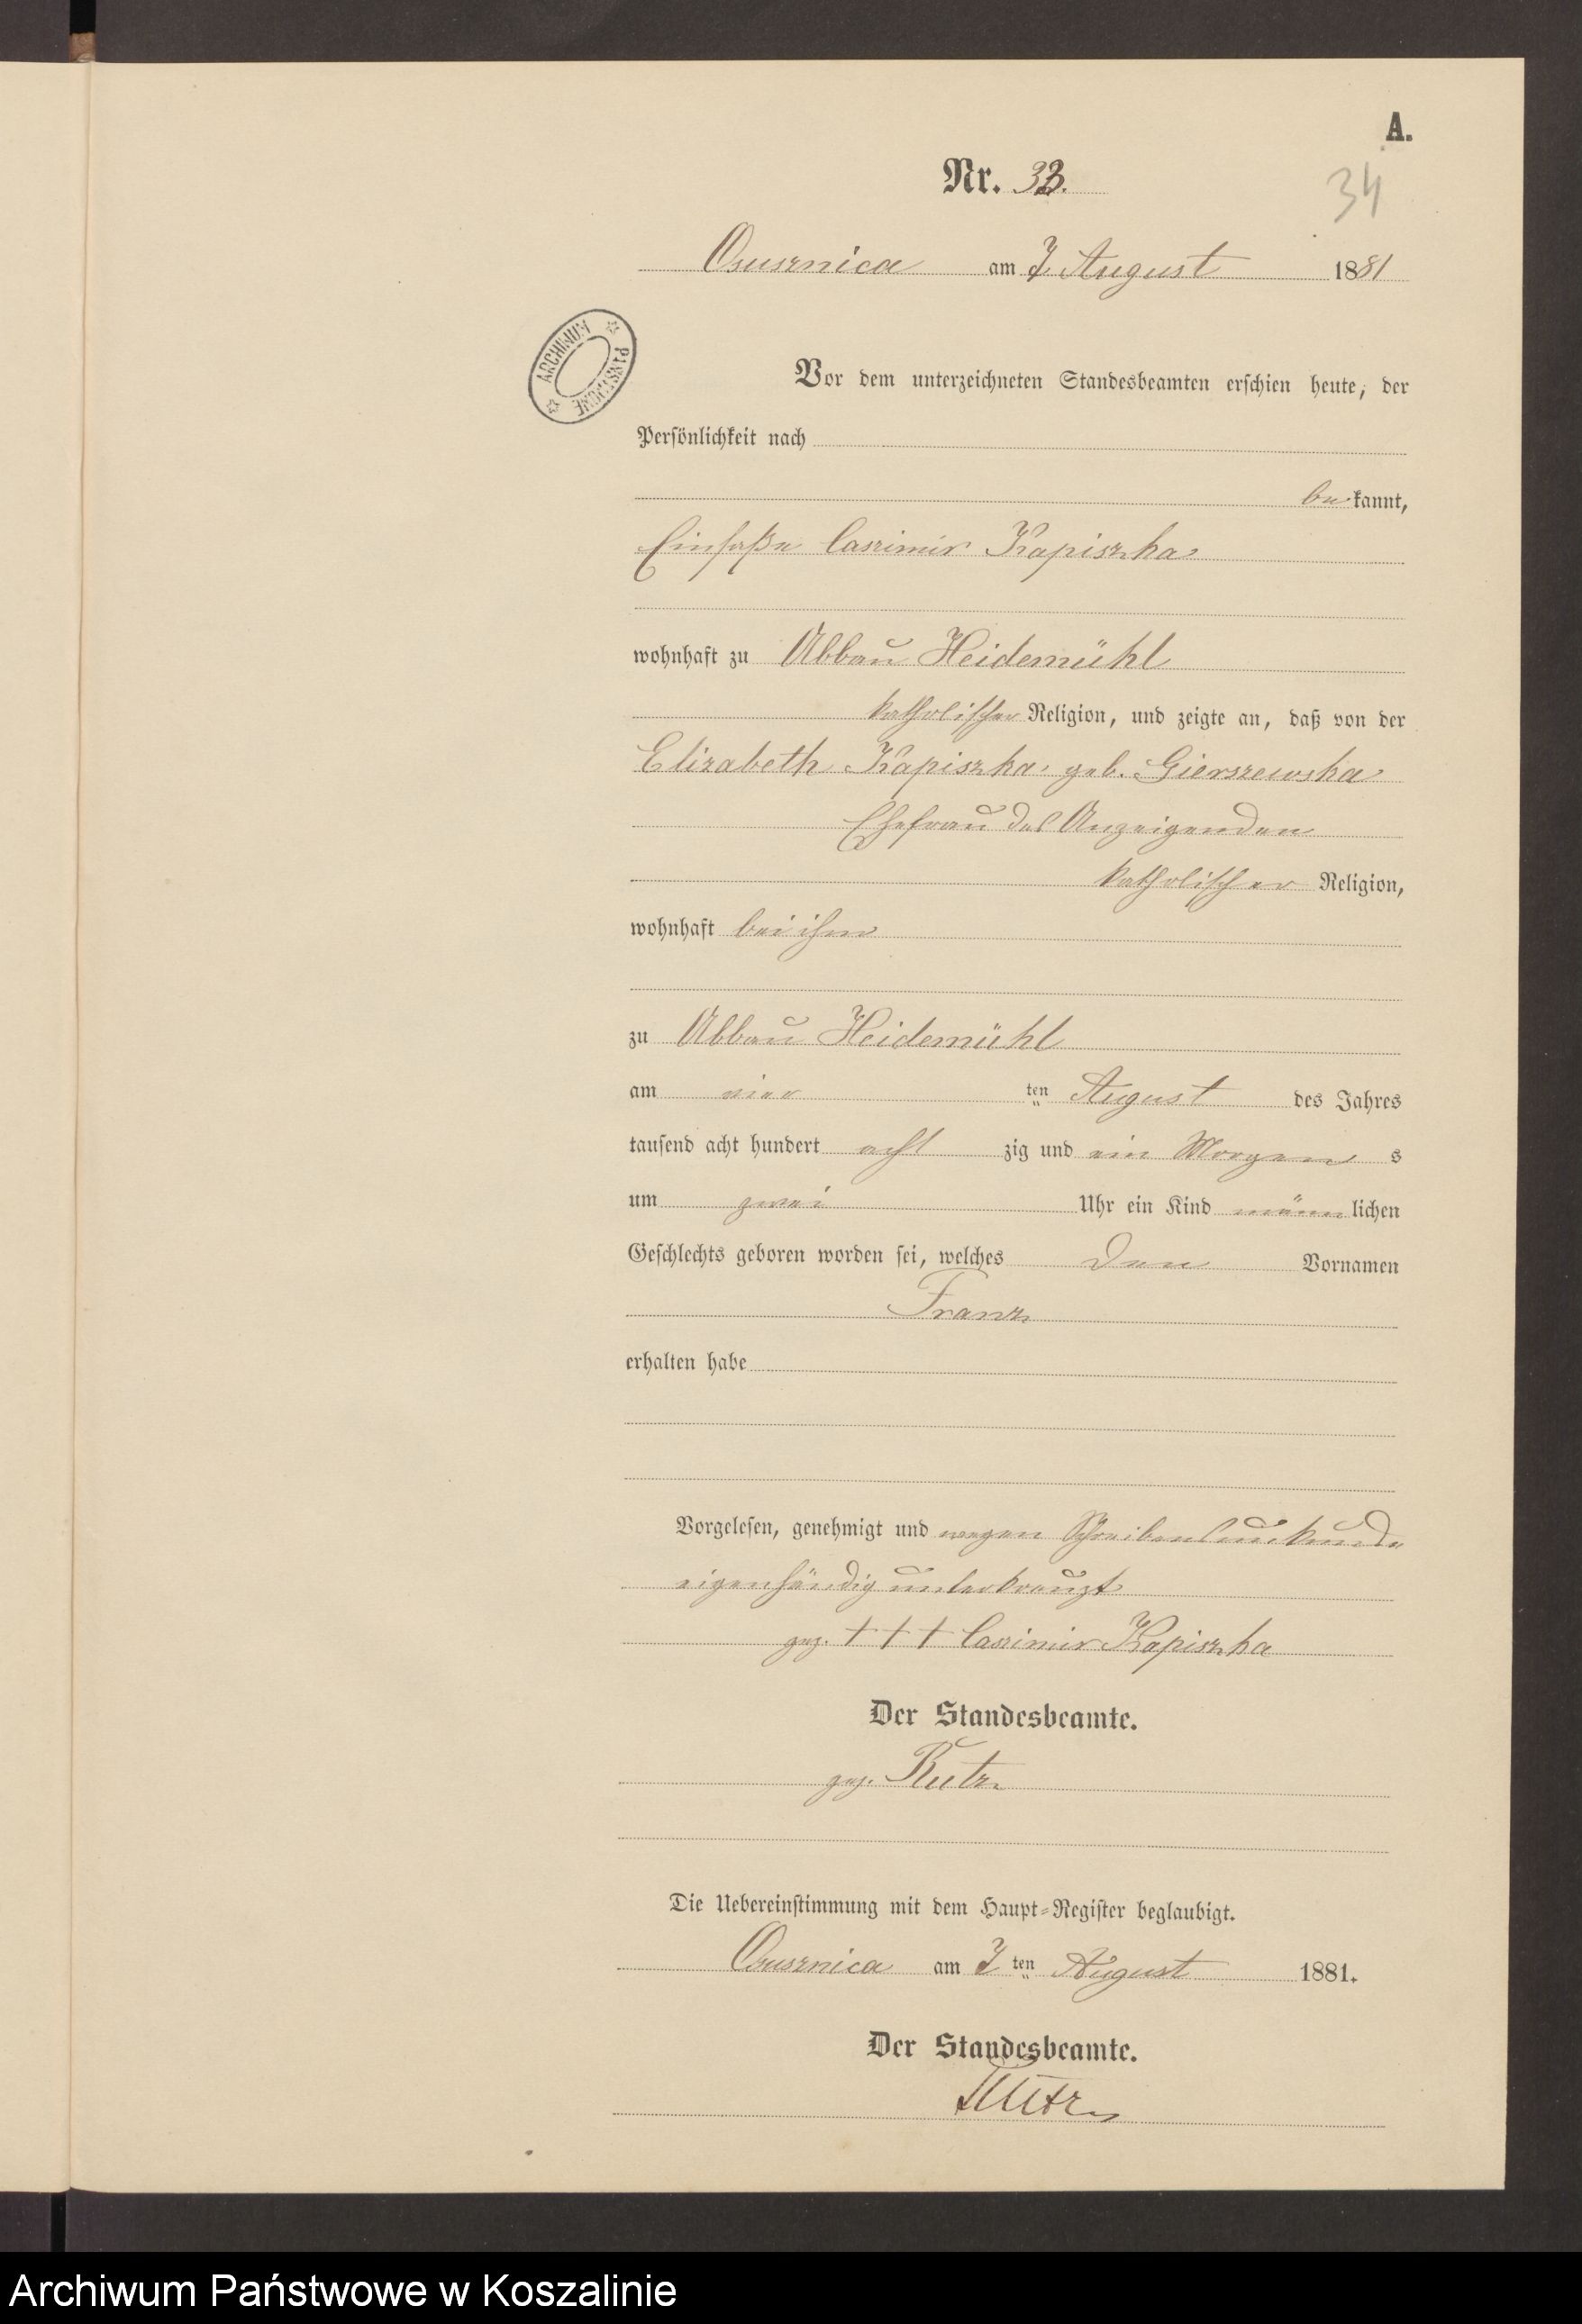 A.
Nr. 33.
34
Osusznica am 7 August 1881
ARCHIWUM PAŃSTWOWE
Vor dem unterzeichneten Standesbeamten erschien heute, der
Persönlichkeit nach
bekannt,
Einsaße Casimir Kapiszka
wohnhaft zu Abbau Heidemühl
katholischer Religion, und zeigte an, daß von der
Elizabeth Kapiszka geb. Gierszewska
Ehefrau des Anzeigenden
katholischer Religion,
wohnhaft bei ihm
zu Abbau Heidemühl
am vier ten August des Jahres
tausend acht hundert acht zig und ein Morgens
um zwei Uhr ein Kind männlichen
Geschlechts geboren worden sei, welches den Vornamen
Franz
erhalten habe
Vorgelesen, genehmigt und wegen Schreibensunkunde
eigenhändig unterkreuzt
gez. + + + Casimir Kapiszka
Der Standesbeamte.
gez. Kutz
Die Uebereinstimmung mit dem Haupt-Register beglaubigt.
Osusznica am 7 ten August 1881.
Der Standesbeamte.
Kutz
Archiwum Państwowe w Koszalinie